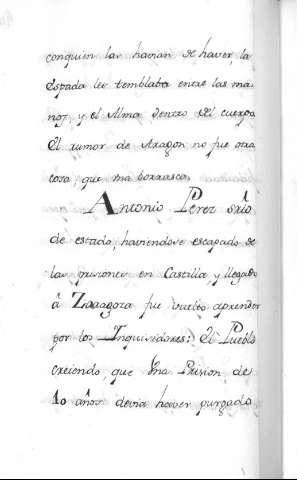 conquien las havian de haver, la
espada les temblaba entre las ma-
nos, y el Alma dentro del cuerpo.
El rumor de Aragon no fue otra
cosa, que una borrasca.
Antonio Perez srio
de estado, haviendose escapado de
las prisiones en Castilla, y llegado
â Zaragoza fue vuelto aprender
por los Inquisidores: El Pueblo
creiendo, que Vna Prision de
10 años devia haver purgado